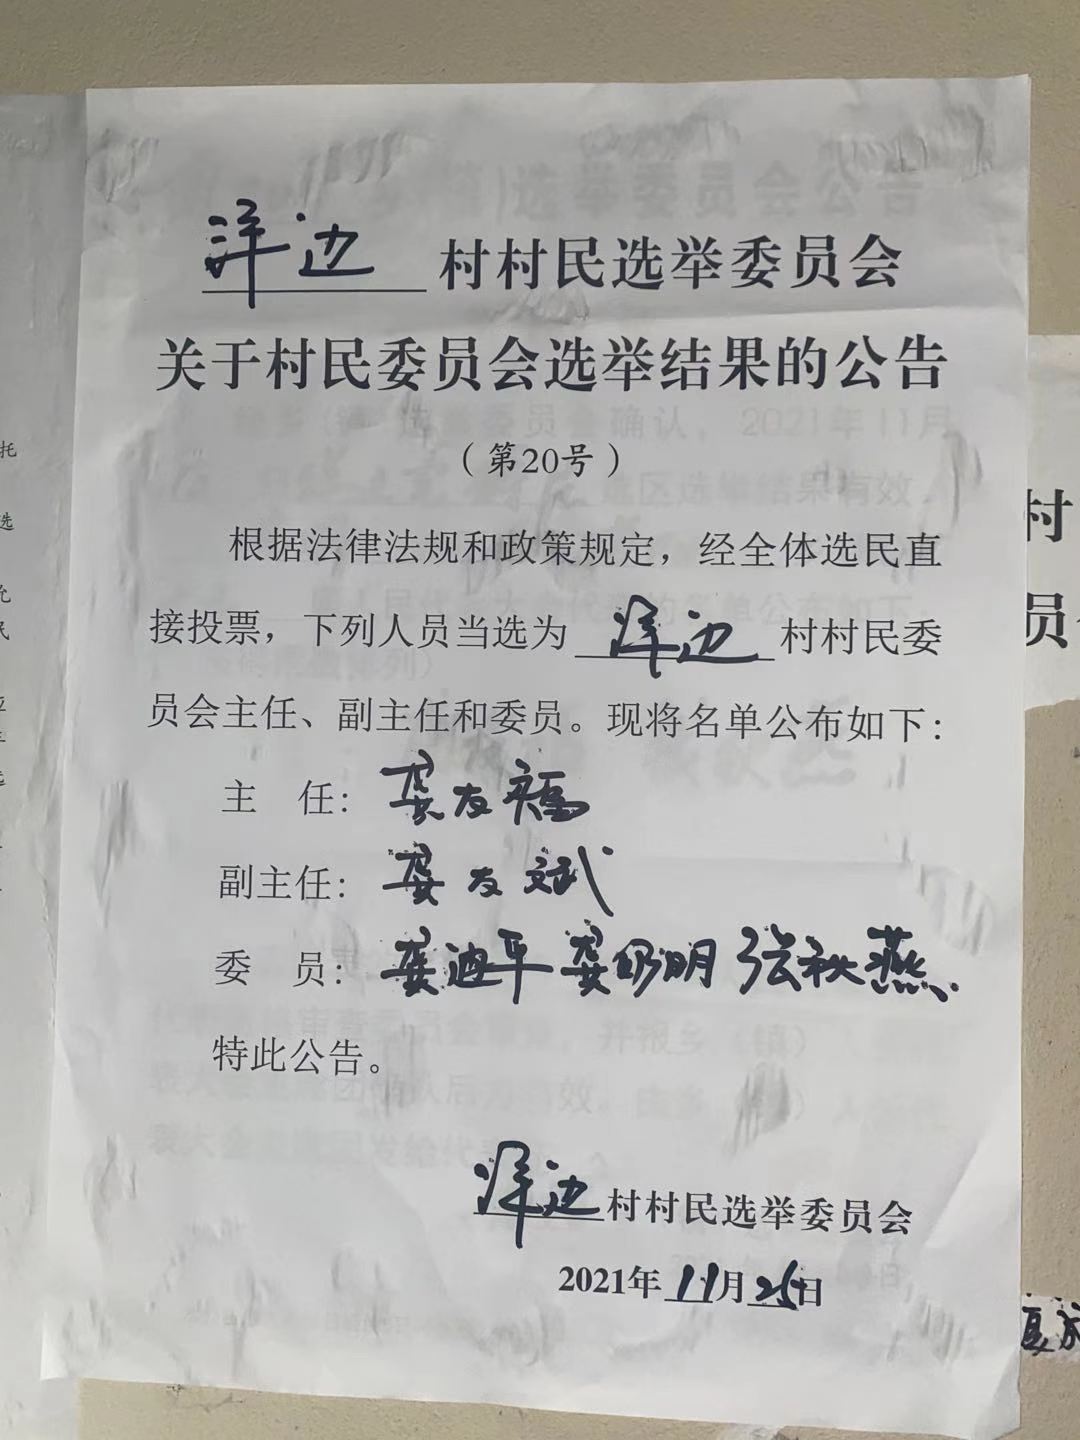 洋边 村村民选举委员会
关于村民委员会选举结果的公告
（第20号）
根据法律法规和政策规定，经全体选民直
接投票，下列人员当选为 洋边 村村民委
员会主任、副主任和委员。现将名单公布如下：
主 任：龚友福
副主任：龚友斌
委 员：龚迪平 龚明 张秋燕
特此公告。
洋边村村民选举委员会
2021年11月25日
托
选
民
村
员